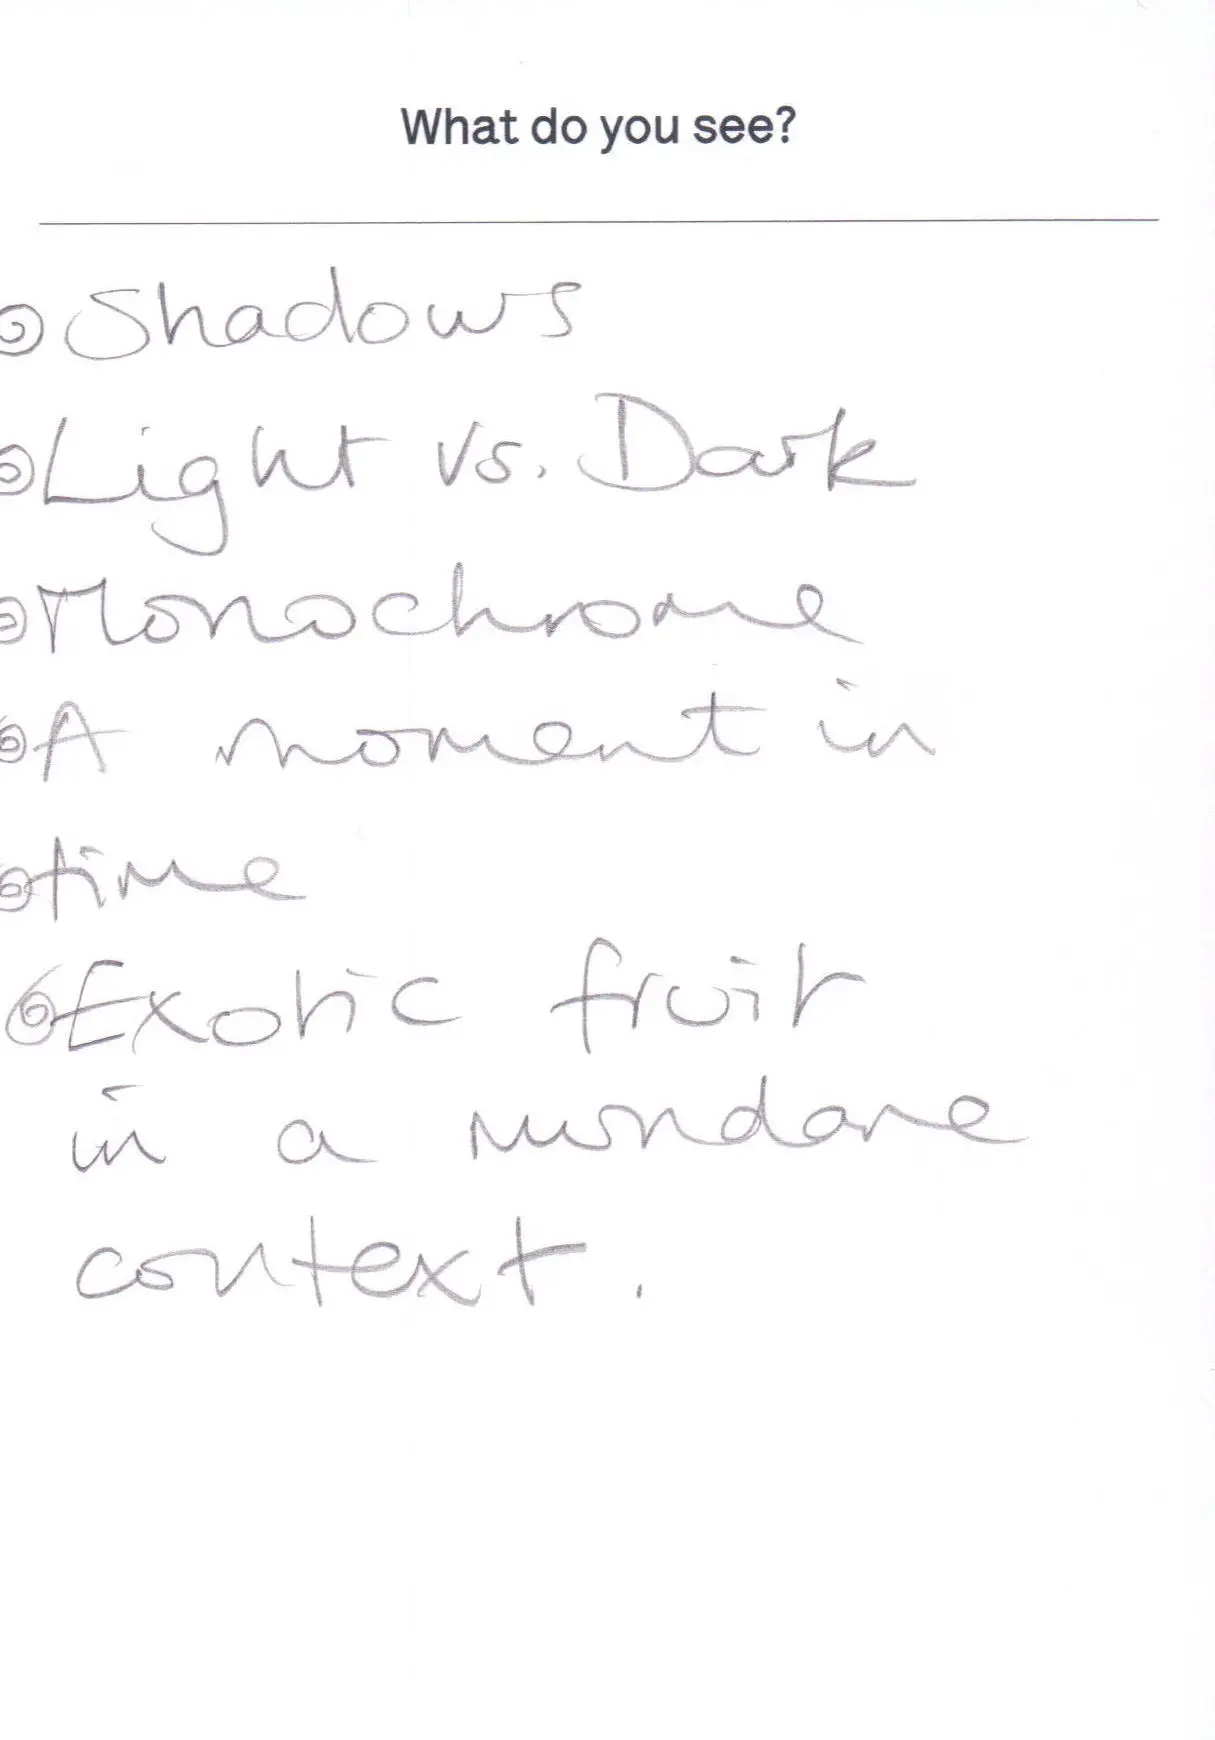 What do you see?
Shadows
Light vs. Dark
Monochrome
A moment in
time
Exotic fruit
in a mundane
context.